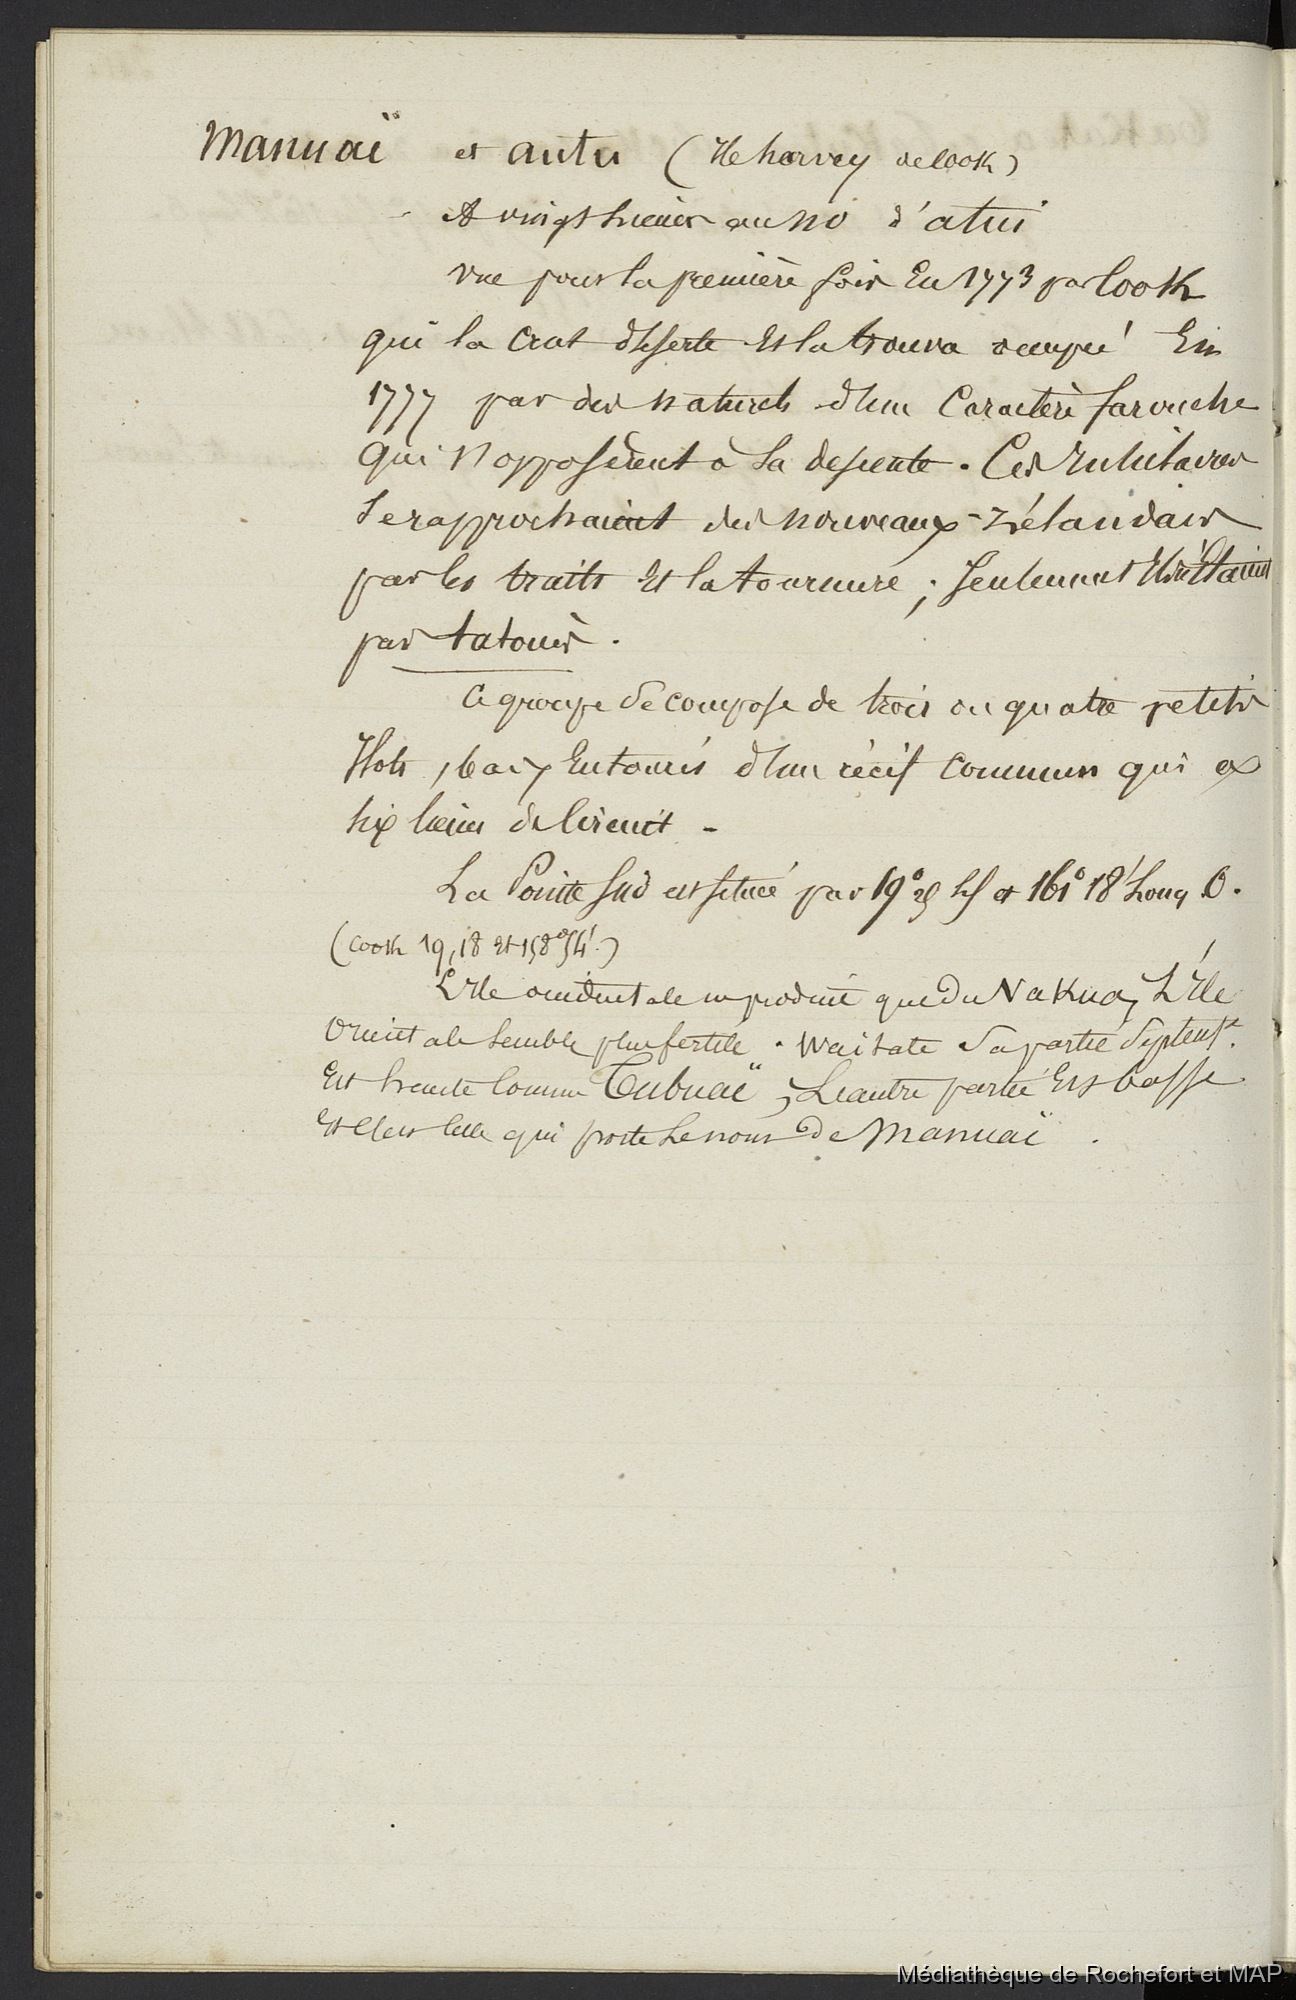 Manuaï et autu (Ile harvey de Cook)
A vingt lieues au NO d'atiu
Vue pour la première fois En 1773 par Cook
qui la crut déserte Et la trouva occupée En
1777 par des naturels d'un Caractère farouche
qui s'opposèrent à sa descente. Ces insulaires
Se rapprochaient des nouveaux-zélandais
par les traits Et la tournure ; Seulement
pas tatoués.
Ce groupe Se compose de trois ou quatre petits
Ilots, bas, Entourés d'un récif commun qui a
Six lieues de Circuit -
La Pointe Sud est située par 19° et 161° 18' Long O.
(Cook 19,18 Et 158°54'.)
L'Ile occidentale ne produit que du L'Ile
Orientale Semble plus fertile. Sa partie Septent.
Est haute Comme Tubuaï, L'autre partie Est basse
Et C'est Celle qui porte Le nom De Manuaï.
Médiathèque de Rochefort et MAP